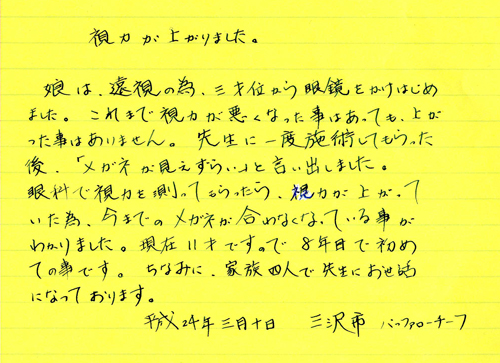 視力が上がりました。
娘は、遠視の為、三才位から眼鏡をかけはじめ
ました。これまで視力が悪くなった事はあっても、上が
った事はありません。先生に一度施術してもらった
後、「メガネが見えずらい」と言い出しました。
眼科で視力を測ってもらったら、視力が上がって
いた為、今までのメガネが合わなくなっている事が
わかりました。現在11才ですので8年目で初め
ての事です。ちなみに、家族四人で先生にお世話
になっております。
平成24年三月十日 三沢市 バッファローチーフ